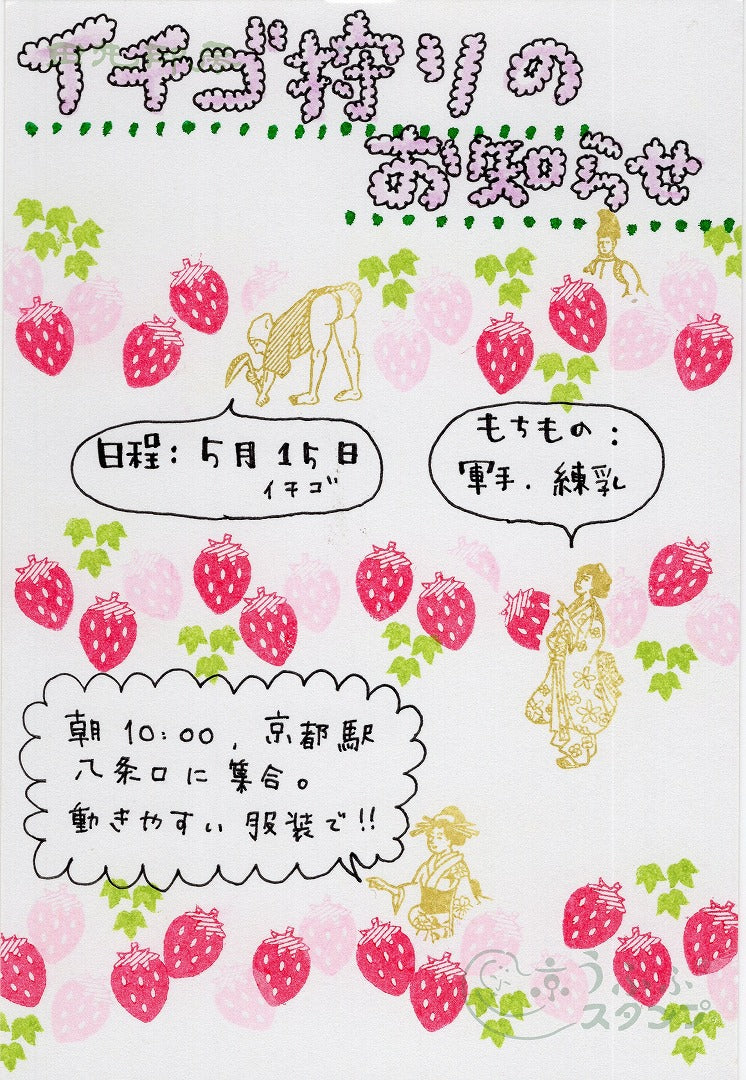 イチゴ狩りの
お知らせ
日程：5月15日
イチゴ
もちもの：
軍手．練乳
朝10:00，京都駅
八条口に集合。
動きやすい服装で!!
スタンプ